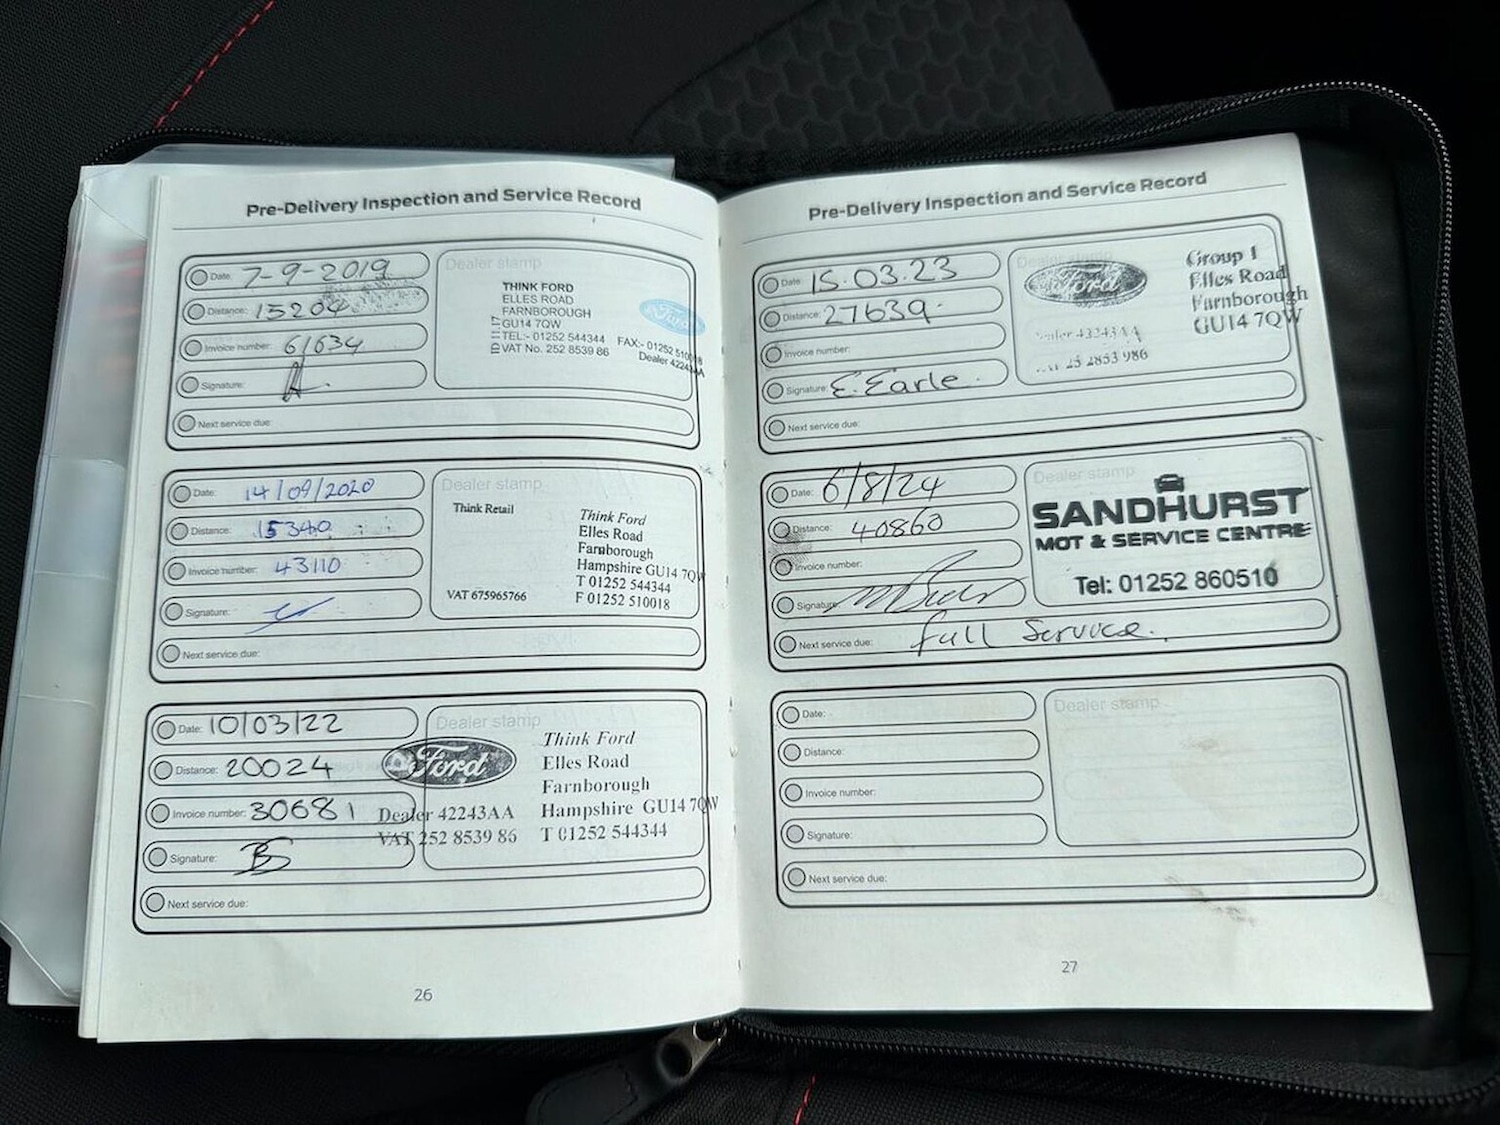 Pre-Delivery Inspection and Service Record
Date: 7-9-2019
Distance: 15204
Invoice number: 61634
Signature:
Next service due:
Dealer stamp
THINK FORD
ELLES ROAD
FARNBOROUGH
GU14 7QW
TEL:- 01252 544344 FAX:- 01252 510018
VAT No. 252 8539 86 Dealer 42243AA
Ford
Date: 14/09/2020
Distance: 15340
Invoice number: 43110
Signature:
Next service due:
Dealer stamp
Think Retail
VAT 675965766
Think Ford
Elles Road
Farnborough
Hampshire GU14 7QW
T 01252 544344
F 01252 510018
Date: 10/03/22
Distance: 20024
Invoice number: 30681
Signature: BS
Next service due:
Dealer stamp
Ford
Dealer 42243AA
VAT 252 8539 86
Think Ford
Elles Road
Farnborough
Hampshire GU14 7QW
T 01252 544344
26
Pre-Delivery Inspection and Service Record
Date: 15.03.23
Distance: 27639.
Invoice number:
Signature: E. Earle.
Next service due:
Dealer stamp
Ford
Group 1
Elles Road
Farnborough
GU14 7QW
Dealer 42243AA
2853 986
Date: 6/8/24
Distance: 40860
Invoice number:
Signature:
Next service due: full Service.
Dealer stamp
SANDHURST
MOT & SERVICE CENTRE
Tel: 01252 860510
Date:
Distance:
Invoice number:
Signature:
Next service due:
Dealer stamp
27